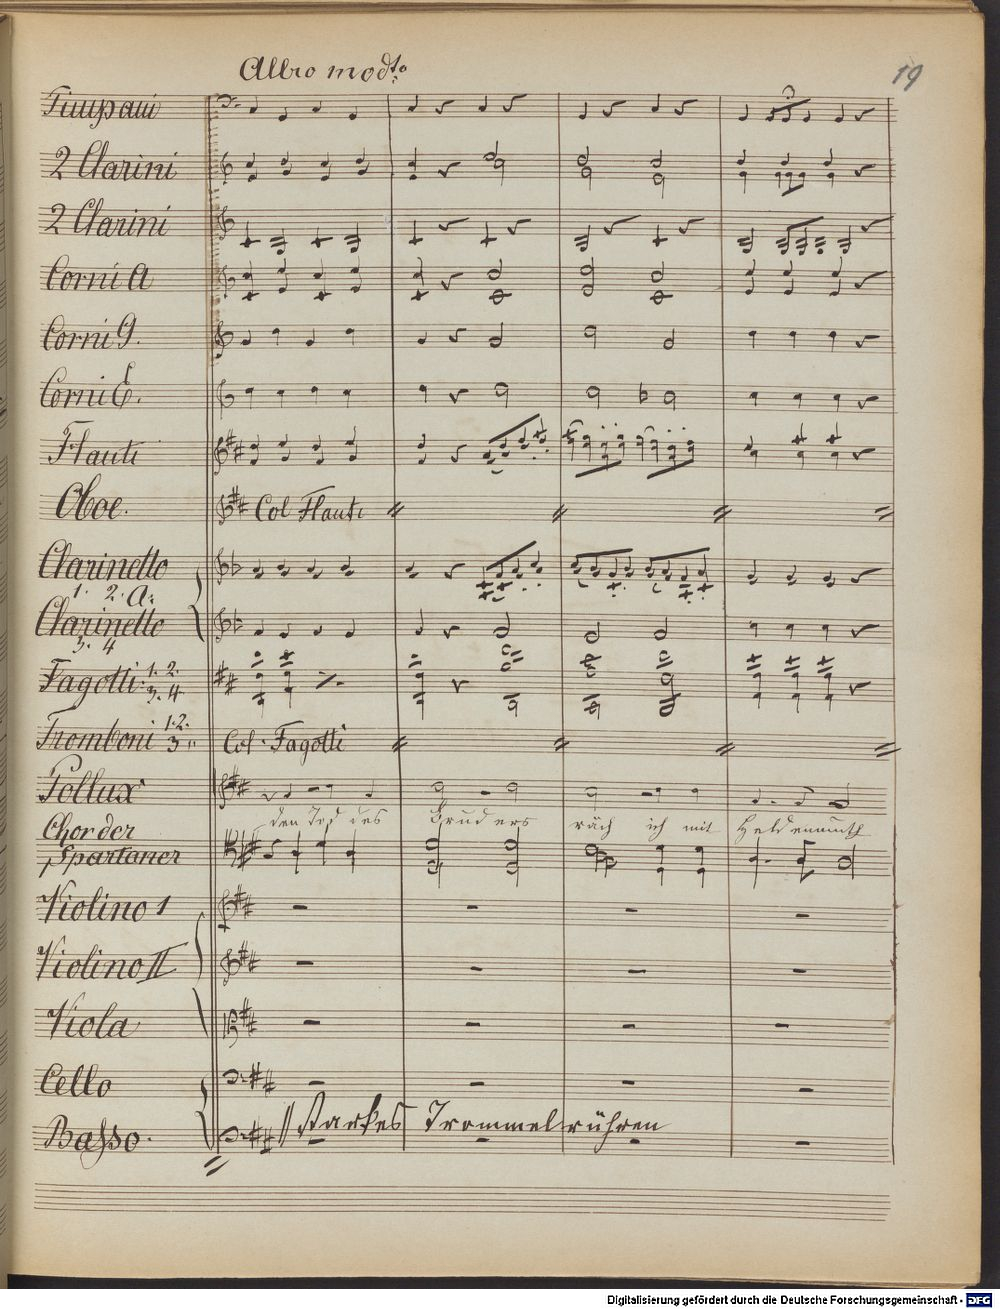 Allro modto
19
Timpani
2 Clarini
2 Clarini
Corni A
Corni G.
Corni E.
Flauti
Oboe. Col Flauti
Clarinetto
1. 2. A:
Clarinetto
3. 4
Fagotti 1. 2.
3. 4
Tromboni 1. 2.
3 Col. Fagotti
Pollux
den Tod des Bruders räch ich mit Heldenmuth
Chor der
Spartaner
Violino 1
Violino II
Viola
Cello
Basso. starkes Trommelrühren
3
Digitalisierung gefördert durch die Deutsche Forschungsgemeinschaft - DFG